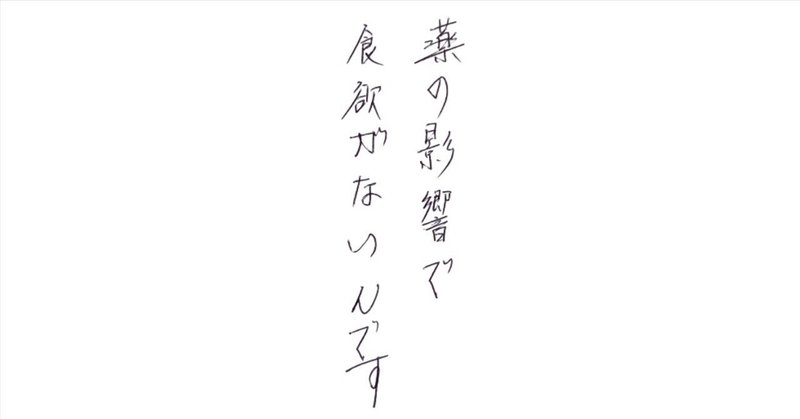 薬の影響で
食欲がないんです